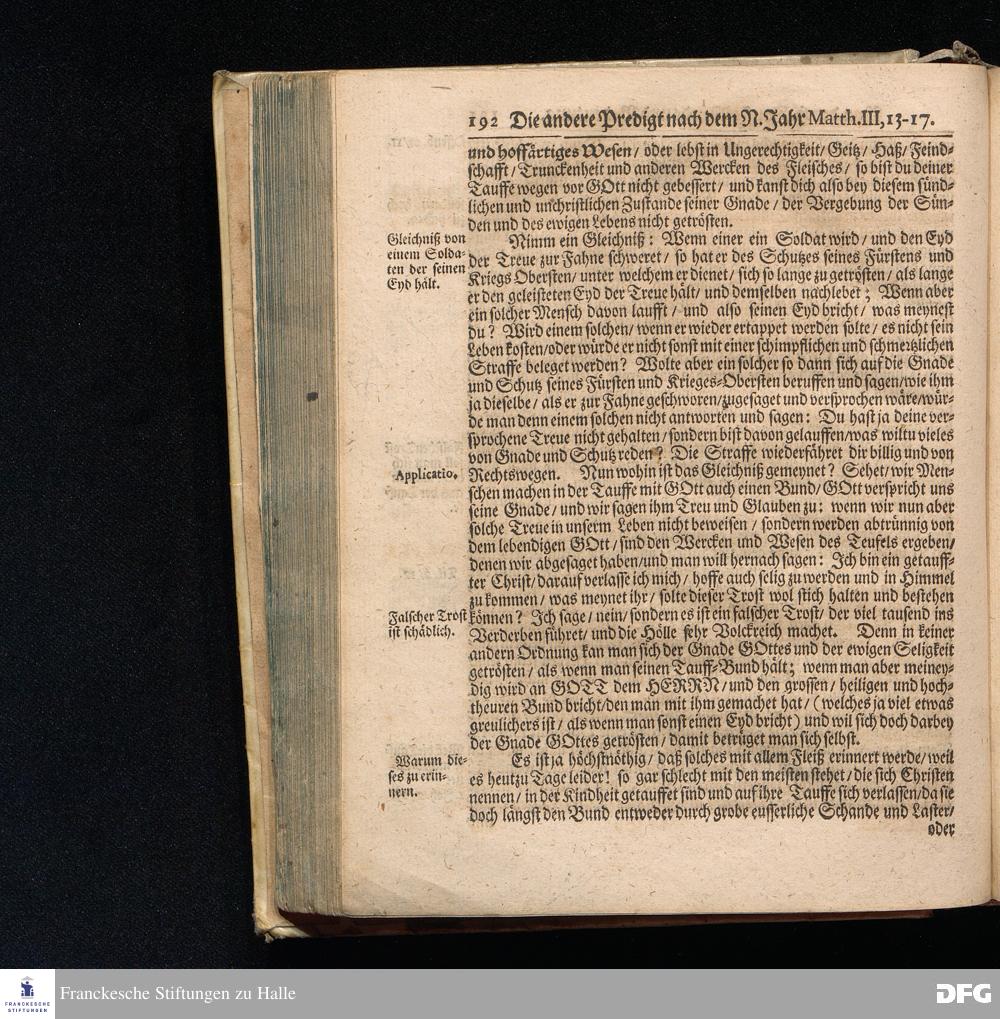 192 Die andere Predigt nach dem N. Jahr Matth. III, 13-17.
und hoffärtiges Wesen / oder lebst in Ungerechtigkeit / Geitz / Haß / Feind-
schafft / Trunckenheit und anderen Wercken des Fleisches / so bist du deiner
Tauffe wegen vor GOtt nicht gebessert / und kanst dich also bey diesem sünd-
lichen und unchristlichen Zustande seiner Gnade / der Vergebung der Sün-
den und des ewigen Lebens nicht getrösten.
Gleichniß von
einem Solda-
ten der seinen
Eyd hält.
Nimm ein Gleichniß: Wenn einer ein Soldat wird / und den Eyd
der Treue zur Fahne schweret / so hat er des Schutzes seines Fürstens und
Kriegs Obersten / unter welchem er dienet / sich so lange zu getrösten / als lange
er den geleisteten Eyd der Treue hält / und demselben nachlebet; Wenn aber
ein solcher Mensch davon laufft / und also seinen Eyd bricht / was meynest
du? Wird einem solchen / wenn er wieder ertappet werden solte / es nicht sein
Leben kosten / oder würde er nicht sonst mit einer schimpflichen und schmertzlichen
Straffe beleget werden? Wolte aber ein solcher so dann sich auf die Gnade
und Schutz seines Fürsten und Krieges-Obersten beruffen und sagen / wie ihm
ja dieselbe / als er zur Fahne geschworen / zugesaget und versprochen wäre / wür-
de man denn einem solchen nicht antworten und sagen: Du hast ja deine ver-
sprochene Treue nicht gehalten / sondern bist davon gelauffen / was wiltu vieles
von Gnade und Schutz reden? Die Straffe wiederfähret dir billig und von
Applicatio.
Rechtswegen. Nun wohin ist das Gleichniß gemeynet? Sehet / wir Men-
schen machen in der Tauffe mit GOtt auch einen Bund / GOtt verspricht uns
seine Gnade / und wir sagen ihm Treu und Glauben zu: wenn wir nun aber
solche Treue in unserm Leben nicht beweisen / sondern werden abtrünnig von
dem lebendigen GOtt / sind den Wercken und Wesen des Teufels ergeben /
denen wir abgesaget haben / und man will hernach sagen: Ich bin ein getauff-
ter Christ / darauf verlasse ich mich / hoffe auch selig zu werden und in Himmel
zu kommen / was meynet ihr / solte dieser Trost wol stich halten und bestehen
Falscher Trost
ist schädlich.
können? Ich sage / nein / sondern es ist ein falscher Trost / der viel tausend ins
Verderben führet / und die Hölle sehr Volckreich machet. Denn in keiner
andern Ordnung kan man sich der Gnade GOttes und der ewigen Seligkeit
getrösten / als wenn man seinen Tauff-Bund hält; wenn man aber meiney-
dig wird an GOTT dem HERRN / und den grossen / heiligen und hoch-
theuren Bund bricht / den man mit ihm gemachet hat / (welches ja viel etwas
greulichers ist / als wenn man sonst einen Eyd bricht) und wil sich doch darbey
der Gnade GOttes getrösten / damit betrüget man sich selbst.
Warum die-
ses zu erin-
nern.
Es ist ja höchstnöthig / daß solches mit allem Fleiß erinnert werde / weil
es heutzu Tage leider! so gar schlecht mit den meisten stehet / die sich Christen
nennen / in der Kindheit getauffet sind und auf ihre Tauffe sich verlassen / da sie
doch längst den Bund entweder durch grobe eusserliche Schande und Laster /
oder
FRANCKESCHE
STIFTUNGEN
Franckesche Stiftungen zu Halle
DFG